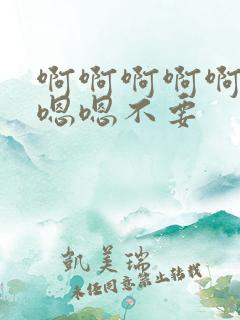 啊啊啊啊啊
嗯嗯不要
凱美瑞
未經同意禁止轉載